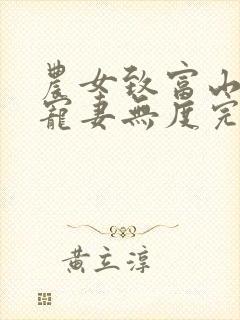 農女致富山
寵妻無度完
黃立淳